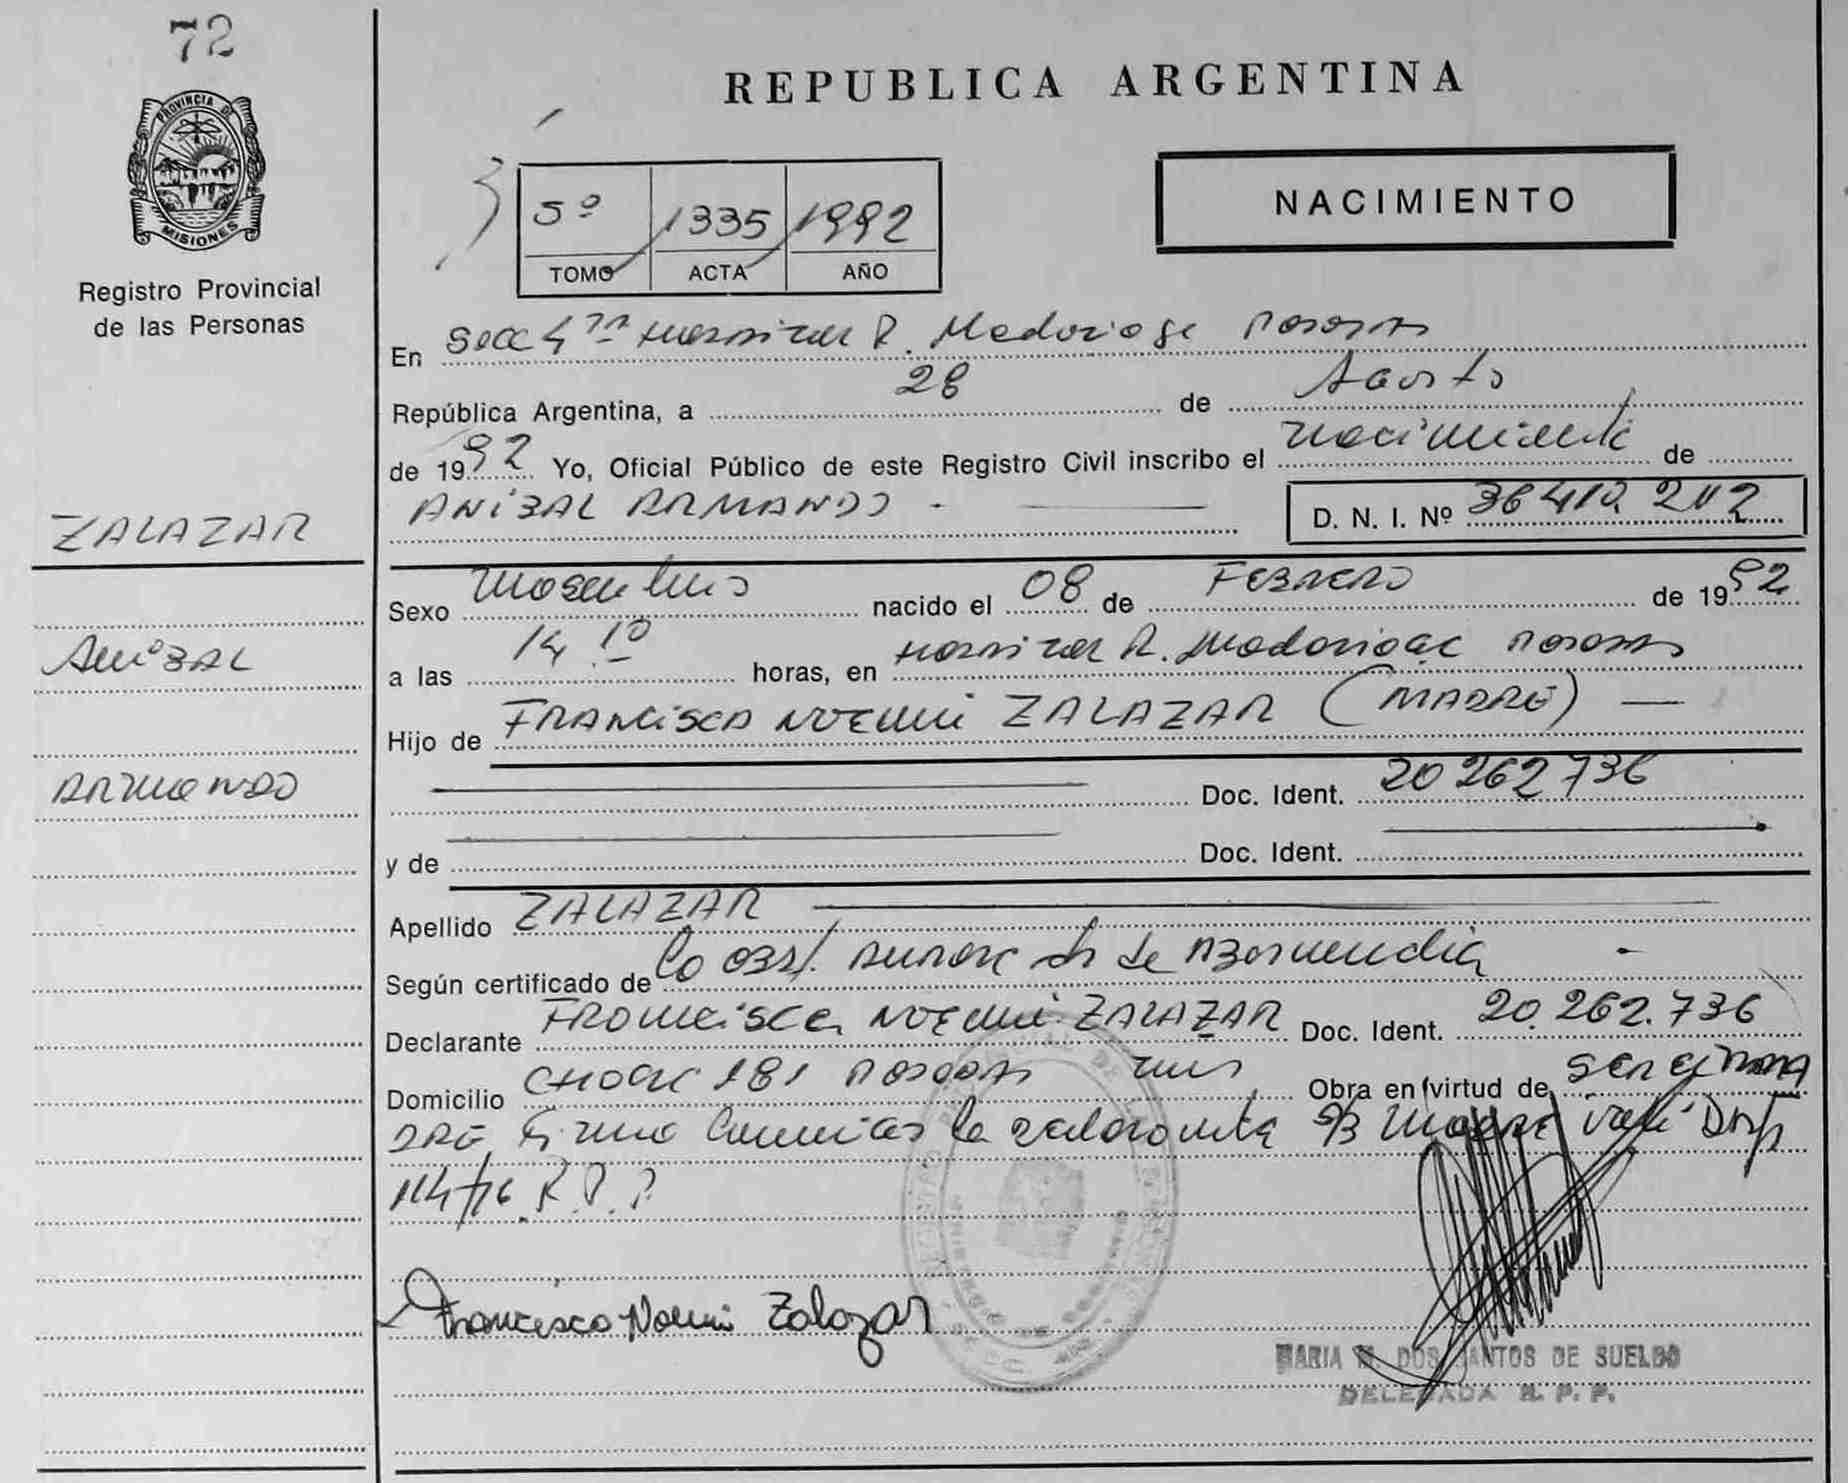 72
PROVINCIA DE
MISIONES
Registro Provincial
de las Personas
ZALAZAR
Anibal
Armando
REPUBLICA ARGENTINA
NACIMIENTO
5º 1335 1992
TOMO ACTA AÑO
En Secc 4ta Hospital R. Madariaga Posadas
República Argentina, a 28 de Agosto
de 1992 Yo, Oficial Público de este Registro Civil inscribo el nacimiento de
ANIBAL ARMANDO
D. N. I. Nº
Sexo Masculino nacido el 08 de Febrero de 1992
a las 14.10 horas, en Hospital R. Madariaga Posadas
Hijo de FRANCISCA NOEMI ZALAZAR (MADRE)
Doc. Ident. 20 262 736
y de Doc. Ident.
Apellido ZALAZAR
Según certificado de la Obst.
Declarante Francisca Noemi ZALAZAR Doc. Ident. 20.262.736
Domicilio 181 Posadas Mns Obra en virtud de ser
Firma la
114/76 R.P.P
Francisca Noemi Zalazar
MARIA M. DOS SANTOS DE SUELDO
DELEGADA R. P. P.